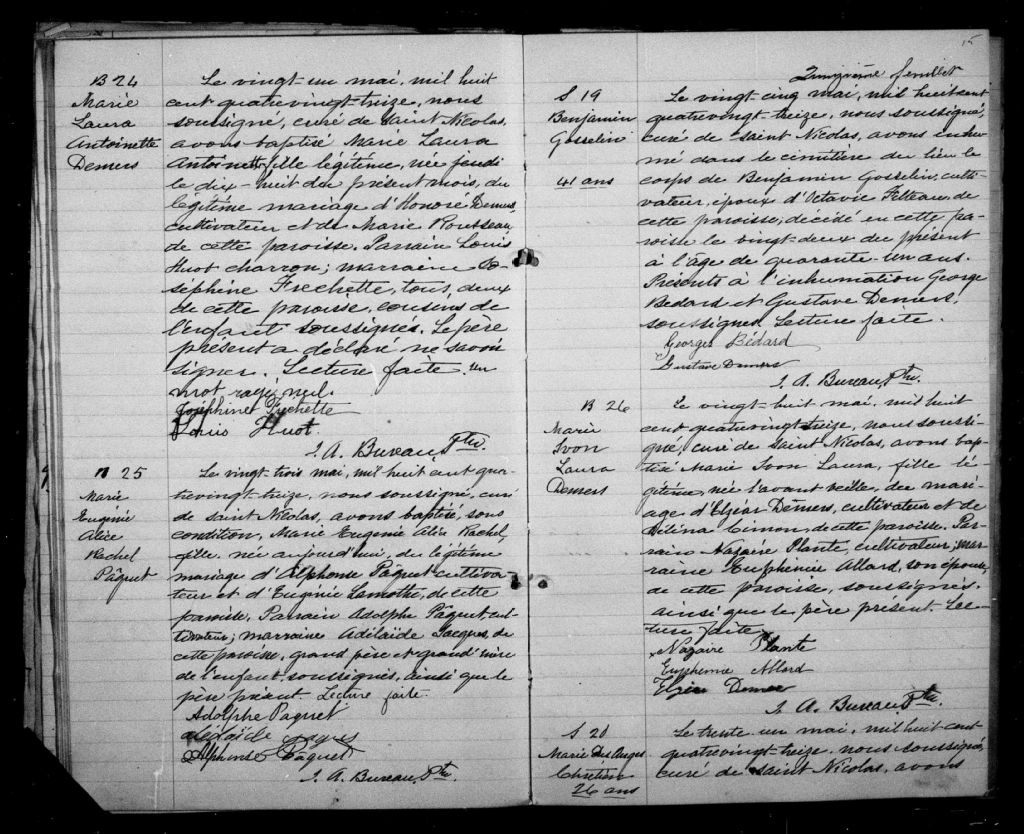 B 24
Marie
Laura
Antoinette
Demers
Le vingt-un mai, mil huit
cent quatrevingt-treize, nous
soussigné, curé de Saint Nicolas,
avons baptisé Marie Laura
Antoinette, fille légitime, née jeudi
le dix-huit du présent mois, du
légitime mariage d'Honoré Demers,
cultivateur et de Marie Rousseau
de cette paroisse. Parrain Louis
Huot charron; marraine Jo-
séphine Frechette, tous deux
de cette paroisse, cousins de
l'enfant soussignés. Le père
présent a déclaré ne savoir
signer. Lecture faite. un
mot rayé nul.
Joséphine Frechette
Louis Huot
J. A. Bureau Ptre.
B 25
Marie
Eugénie
Alice
Rachel
Pâquet
Le vingt-trois mai, mil huit cent qua-
trevingt-treize, nous soussigné, curé
de saint Nicolas, avons baptisé, sous
condition, Marie Eugénie Alice Rachel,
fille née aujourd'hui, du légitime
mariage d'Alphonse Pâquet cultiva-
teur et d'Eugénie Lamothe, de cette
paroisse. Parrain Adolphe Pâquet, cul-
tivateur; marraine Adélaïde Jacques, de
cette paroisse, grand père et grand'mère
de l'enfant soussignés, ainsi que le
père présent. Lecture faite.
Adolphe Paquet
Alphonse Paquet
J. A. Bureau Ptre.
15
Quinzième feuillet
S 19
Benjamin
Gosselin
41 ans
Le vingt-cinq mai, mil huit cent
quatrevingt-treize, nous soussigné,
curé de saint Nicolas, avons inhu-
mé dans le cimetière du lieu le
corps de Benjamin Gosselin, culti-
vateur, époux d'Octavie Filteau, de
cette paroisse, décédé en cette pa-
roisse le vingt-deux du présent
à l'âge de quarante-un ans.
Présents à l'inhumation George
Bedard et Gustave Demers,
soussignés. Lecture faite.
Georges Bédard
Gustave Demers
J. A. Bureau Ptre.
B 26
Marie
Ivon
Laura
Demers
Le vingt-huit mai, mil huit
cent quatrevingt treize, nous soussi-
gné, curé de saint Nicolas, avons bap-
tisé Marie Ivon Laura, fille lé-
gitime, née l'avant veille, du mari-
age d'Elzéar Demers, cultivateur et de
Délina Simon de cette paroisse. Par-
rain Nazaire Plante, cultivateur; mar-
raine Euphémie Allard, son épouse,
de cette paroisse, soussignés.
ainsi que le père présent. Lec-
ture faite.
Nazaire Plante
Euphemie Allard
Elzéar Demers
J. A. Bureau Ptre.
S 20
Marie Des Anges
Chrétien
26 ans
Le trente-un mai, mil huit cent
quatrevingt-treize, nous soussigné,
curé de saint Nicolas, avons